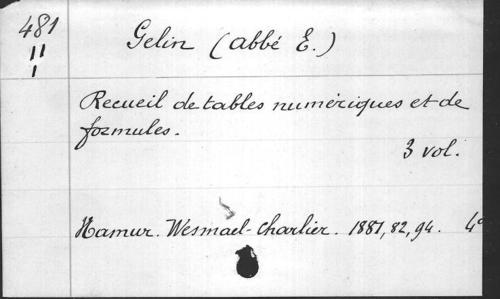 481
II
I
Gelin (abbé E.)
Recueil de tables numériques et de
formules.
3 vol.
Namur. Wesmael-Charlier. 1881, 82, 94. 4°